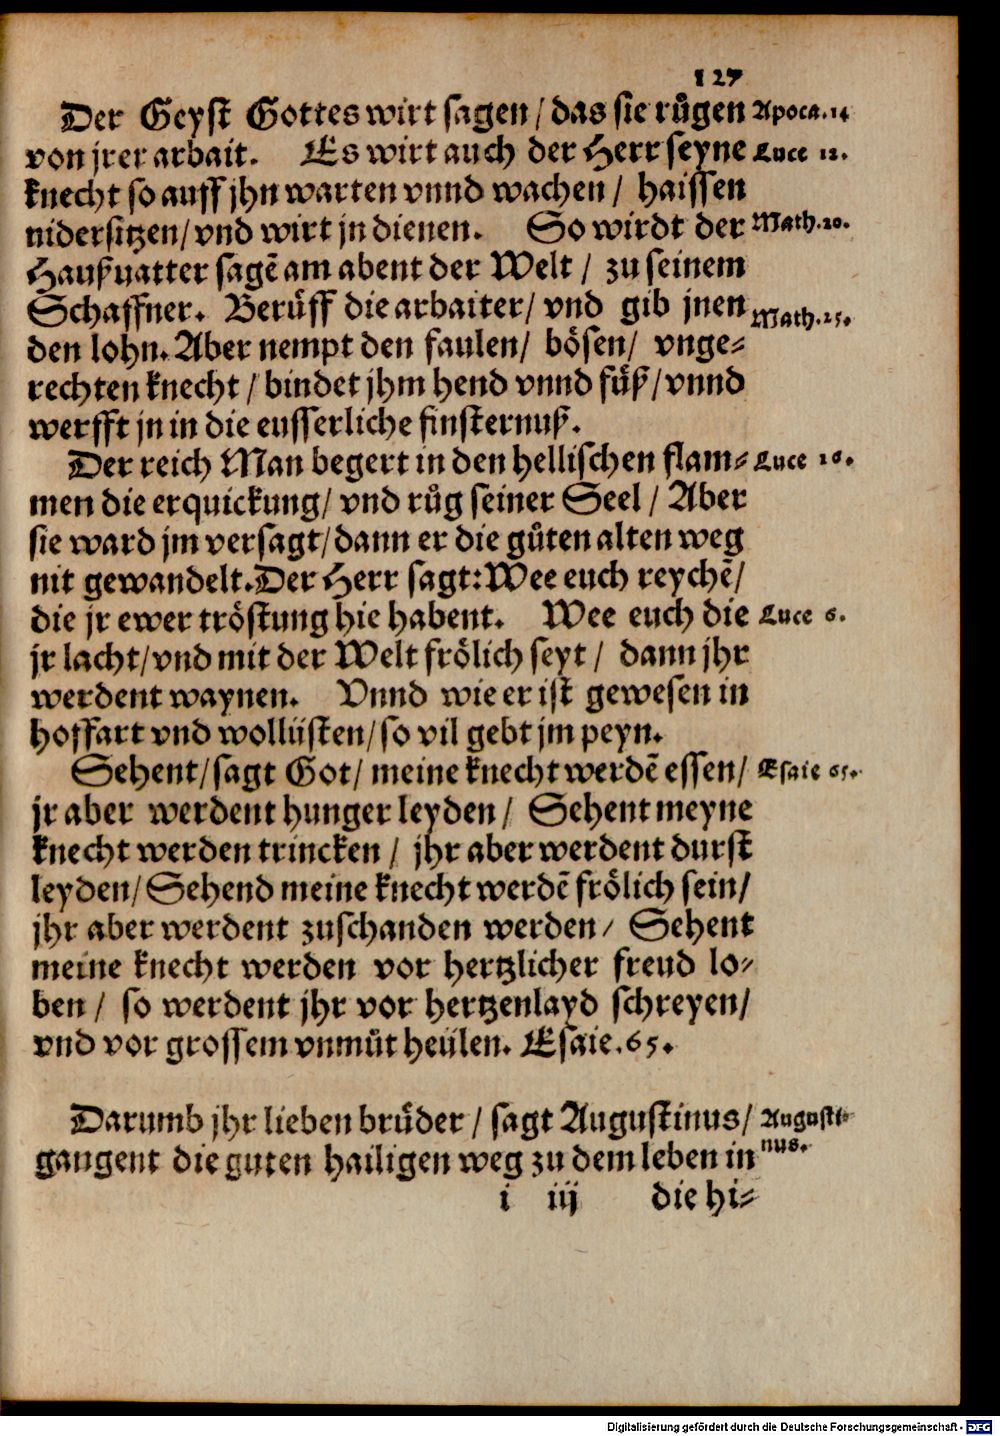 127
Der Geyst Gottes wirt sagen / das sie růgen Apoca. 14
von jrer arbait. Es wirt auch der Herr seyne Luce 12.
knecht so auff jhn warten vnnd wachen / haissen
nidersitzen / vnd wirt jn dienen. So wirdt der Math. 20.
Haußuatter sagē am abent der Welt / zu seinem
Schaffner. Berůff die arbaiter / vnd gib jnen Math. 25.
den lohn. Aber nempt den faulen / bösen / vnge⸗
rechten knecht / bindet jhm hend vnnd fůß / vnnd
werfft jn in die eusserliche finsternuß.
Der reich Man begert in den hellischen flam⸗ Luce 16.
men die erquickung / vnd růg seiner Seel / Aber
sie ward jm versagt / dann er die gůten alten weg
nit gewandelt. Der Herr sagt: Wee euch reychē /
die jr ewer tröstung hie habent. Wee euch die Luce 6.
jr lacht / vnd mit der Welt frölich seyt / dann jhr
werdent waynen. Vnnd wie er ist gewesen in
hoffart vnd wollüsten / so vil gebt jm peyn.
Sehent / sagt Got / meine knecht werdē essen / Esaie 65.
jr aber werdent hunger leyden / Sehent meyne
knecht werden trincken / jhr aber werdent durst
leyden / Sehend meine knecht werdē frölich sein /
jhr aber werdent zuschanden werden / Sehent
meine knecht werden vor hertzlicher freud lo⸗
ben / so werdent jhr vor hertzenlayd schreyen /
vnd vor grossem vnmůt heülen. Esaie. 65.
Darumb jhr lieben brůder / sagt Augustinus / Augusti⸗
gangent die guten hailigen weg zu dem leben in nus.
i iij die hi⸗
Digitalisierung gefördert durch die Deutsche Forschungsgemeinschaft - DFG